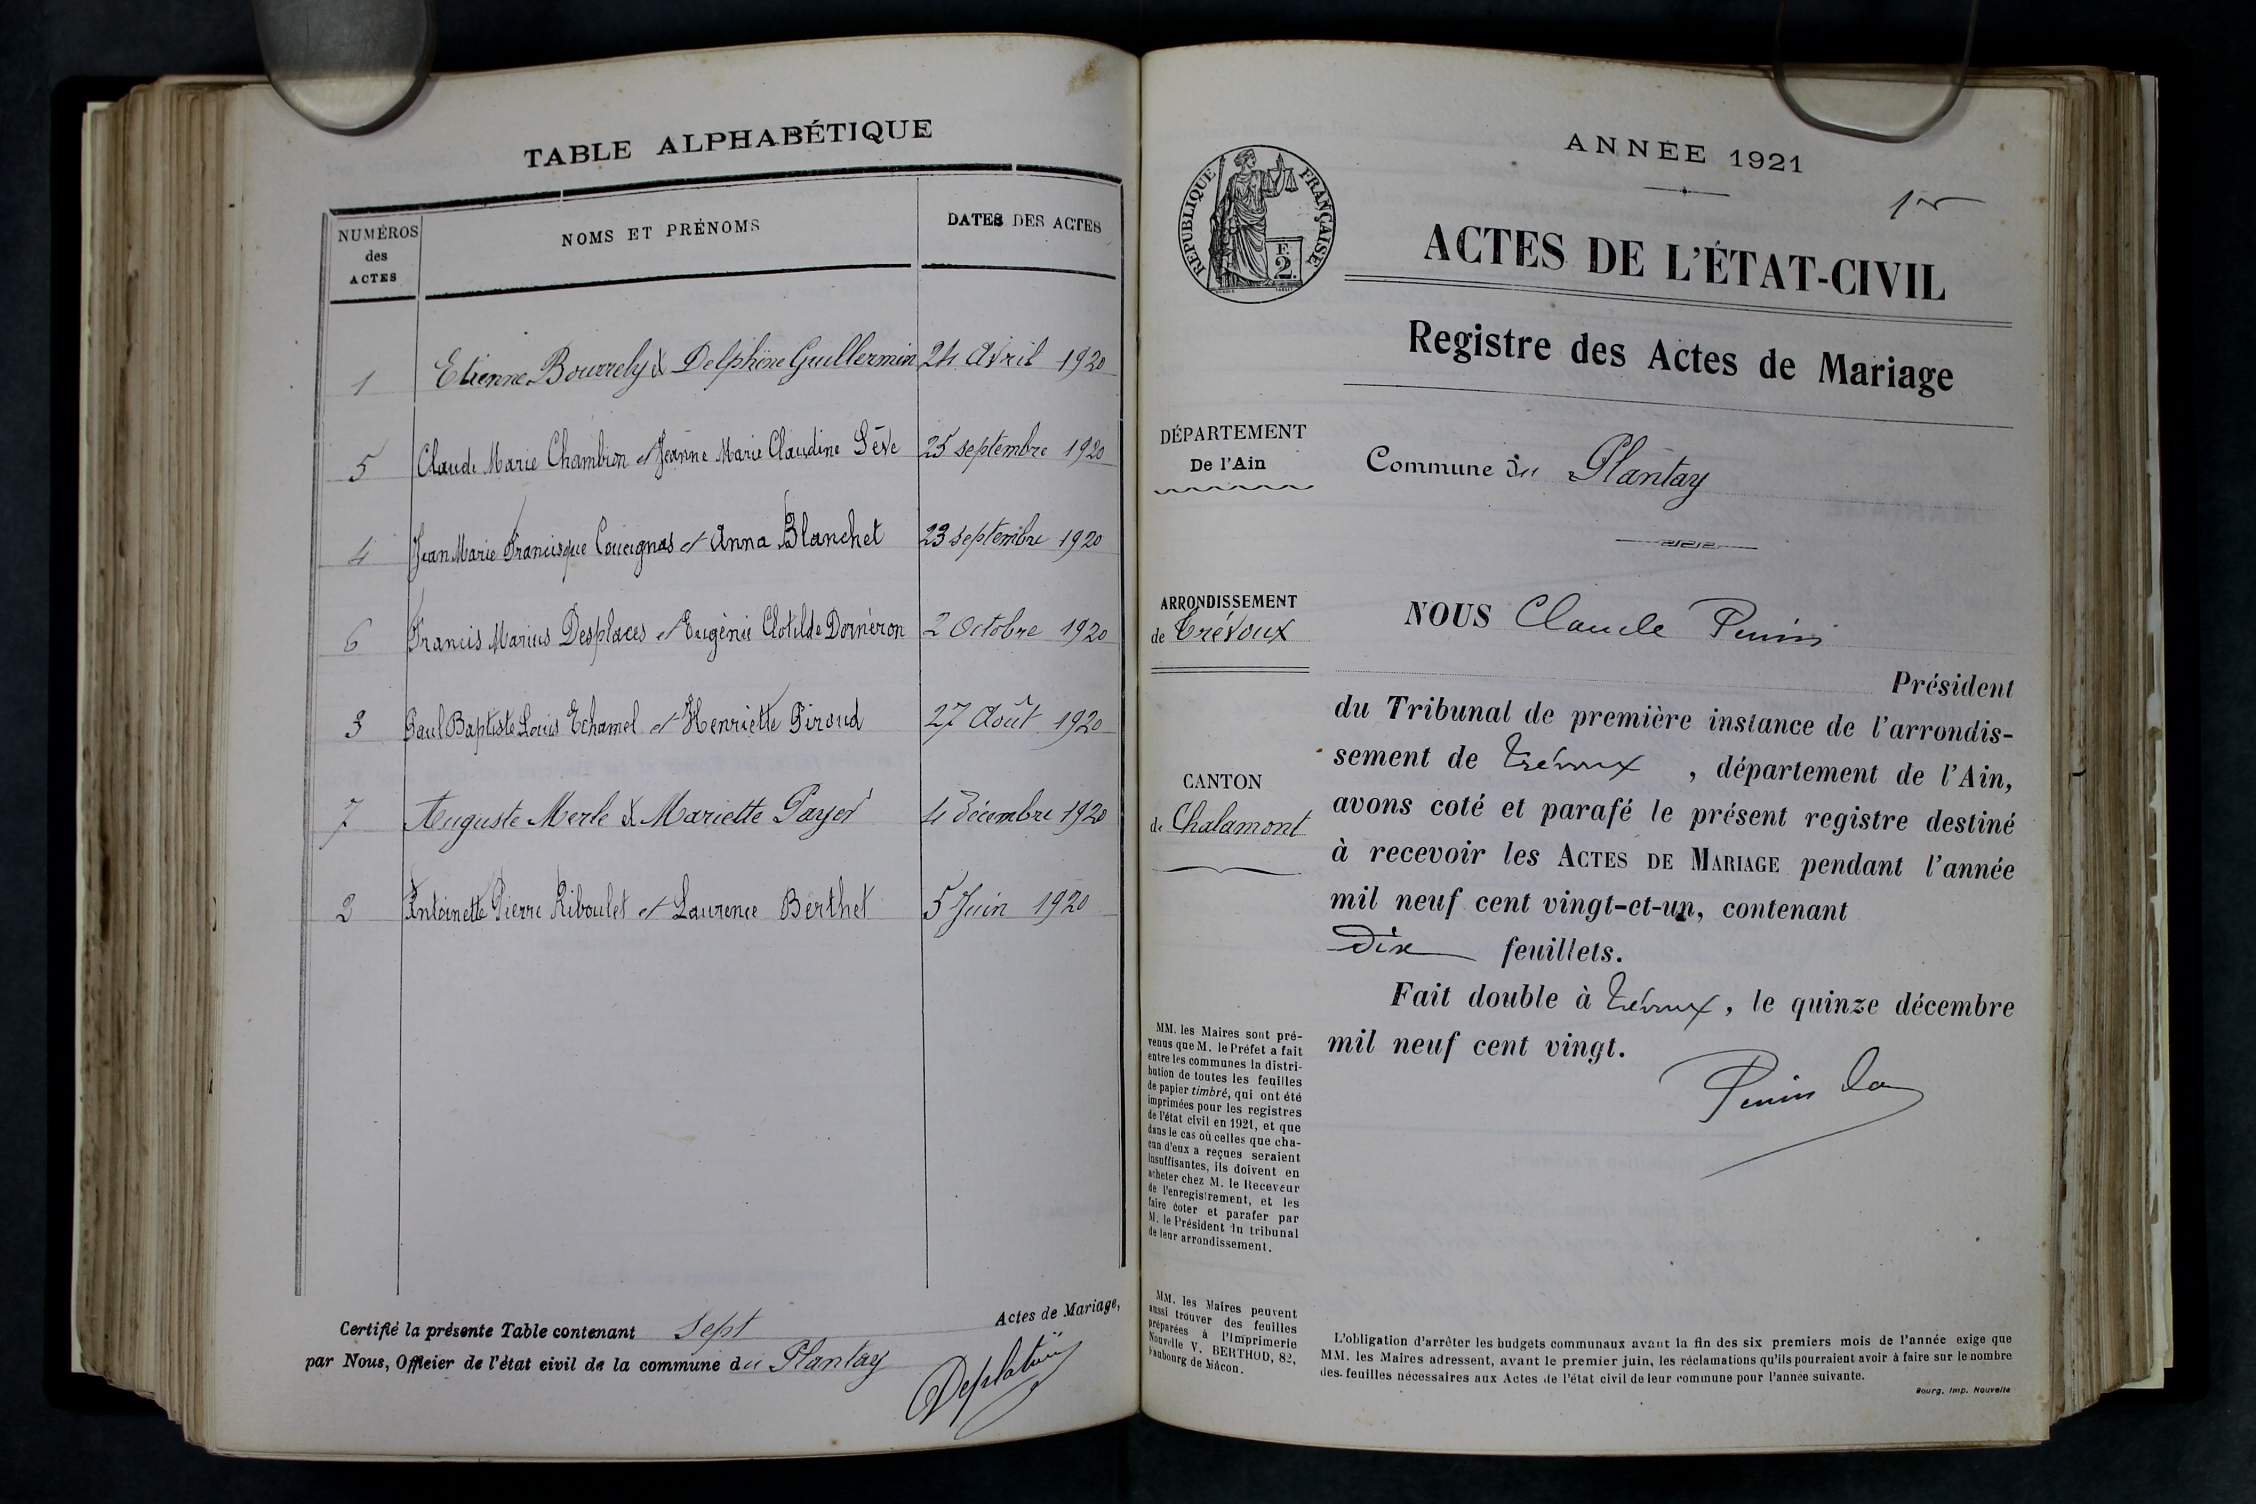 TABLE ALPHABÉTIQUE
NUMÉROS des ACTES
NOMS ET PRÉNOMS
DATES DES ACTES
1 Etienne Bourrely & Delphine Guillermin 24 Avril 1920
5 Claude Marie Chambion et Jeanne Marie Claudine Sève 25 septembre 1920
4 Jean Marie Francisque et Anna Blanchet 23 septembre 1920
6 Francis Marius Desplaces et Eugénie Clotilde Dornéron 2 Octobre 1920
3 Paul Baptiste Louis Echamel et Henriette Piroud 27 Août 1920
7 Auguste Merle & Mariette Payet 4 décembre 1920
2 Antoinette Pierre Riboulet et Laurence Berthet 5 Juin 1920
Certifié la présente Table contenant sept Actes de Mariage,
par Nous, Officier de l'état civil de la commune du Plantay
ANNÉE 1921
RÉPUBLIQUE FRANÇAISE
F.
2.
ACTES DE L'ÉTAT-CIVIL
Registre des Actes de Mariage
DÉPARTEMENT
De l'Ain
Commune du Plantay
ARRONDISSEMENT
de Trévoux
CANTON
de Chalamont
NOUS Claude
Président
du Tribunal de première instance de l'arrondis-
sement de Trévoux, département de l'Ain,
avons coté et parafé le présent registre destiné
à recevoir les ACTES DE MARIAGE pendant l'année
mil neuf cent vingt-et-un, contenant
Dix feuillets.
Fait double à Trévoux, le quinze décembre
mil neuf cent vingt.
MM. les Maires sont pré-
venus que M. le Préfet a fait
entre les communes la distri-
bution de toutes les feuilles
de papier timbré, qui ont été
imprimées pour les registres
de l'état civil en 1921, et que
dans le cas où celles que cha-
cun d'eux a reçues seraient
insuffisantes, ils doivent en
acheter chez M. le Receveur
de l'enregistrement, et les
faire coter et parafer par
M. le Président du tribunal
de leur arrondissement.
MM. les Maires peuvent
aussi trouver des feuilles
préparées à l'Imprimerie
Nouvelle V. BERTHOD, 82,
Faubourg de Mâcon.
L'obligation d'arrêter les budgets communaux avant la fin des six premiers mois de l'année exige que
MM. les Maires adressent, avant le premier juin, les réclamations qu'ils pourraient avoir à faire sur le nombre
des feuilles nécessaires aux Actes de l'état civil de leur commune pour l'année suivante.
Bourg, Imp. Nouvelle